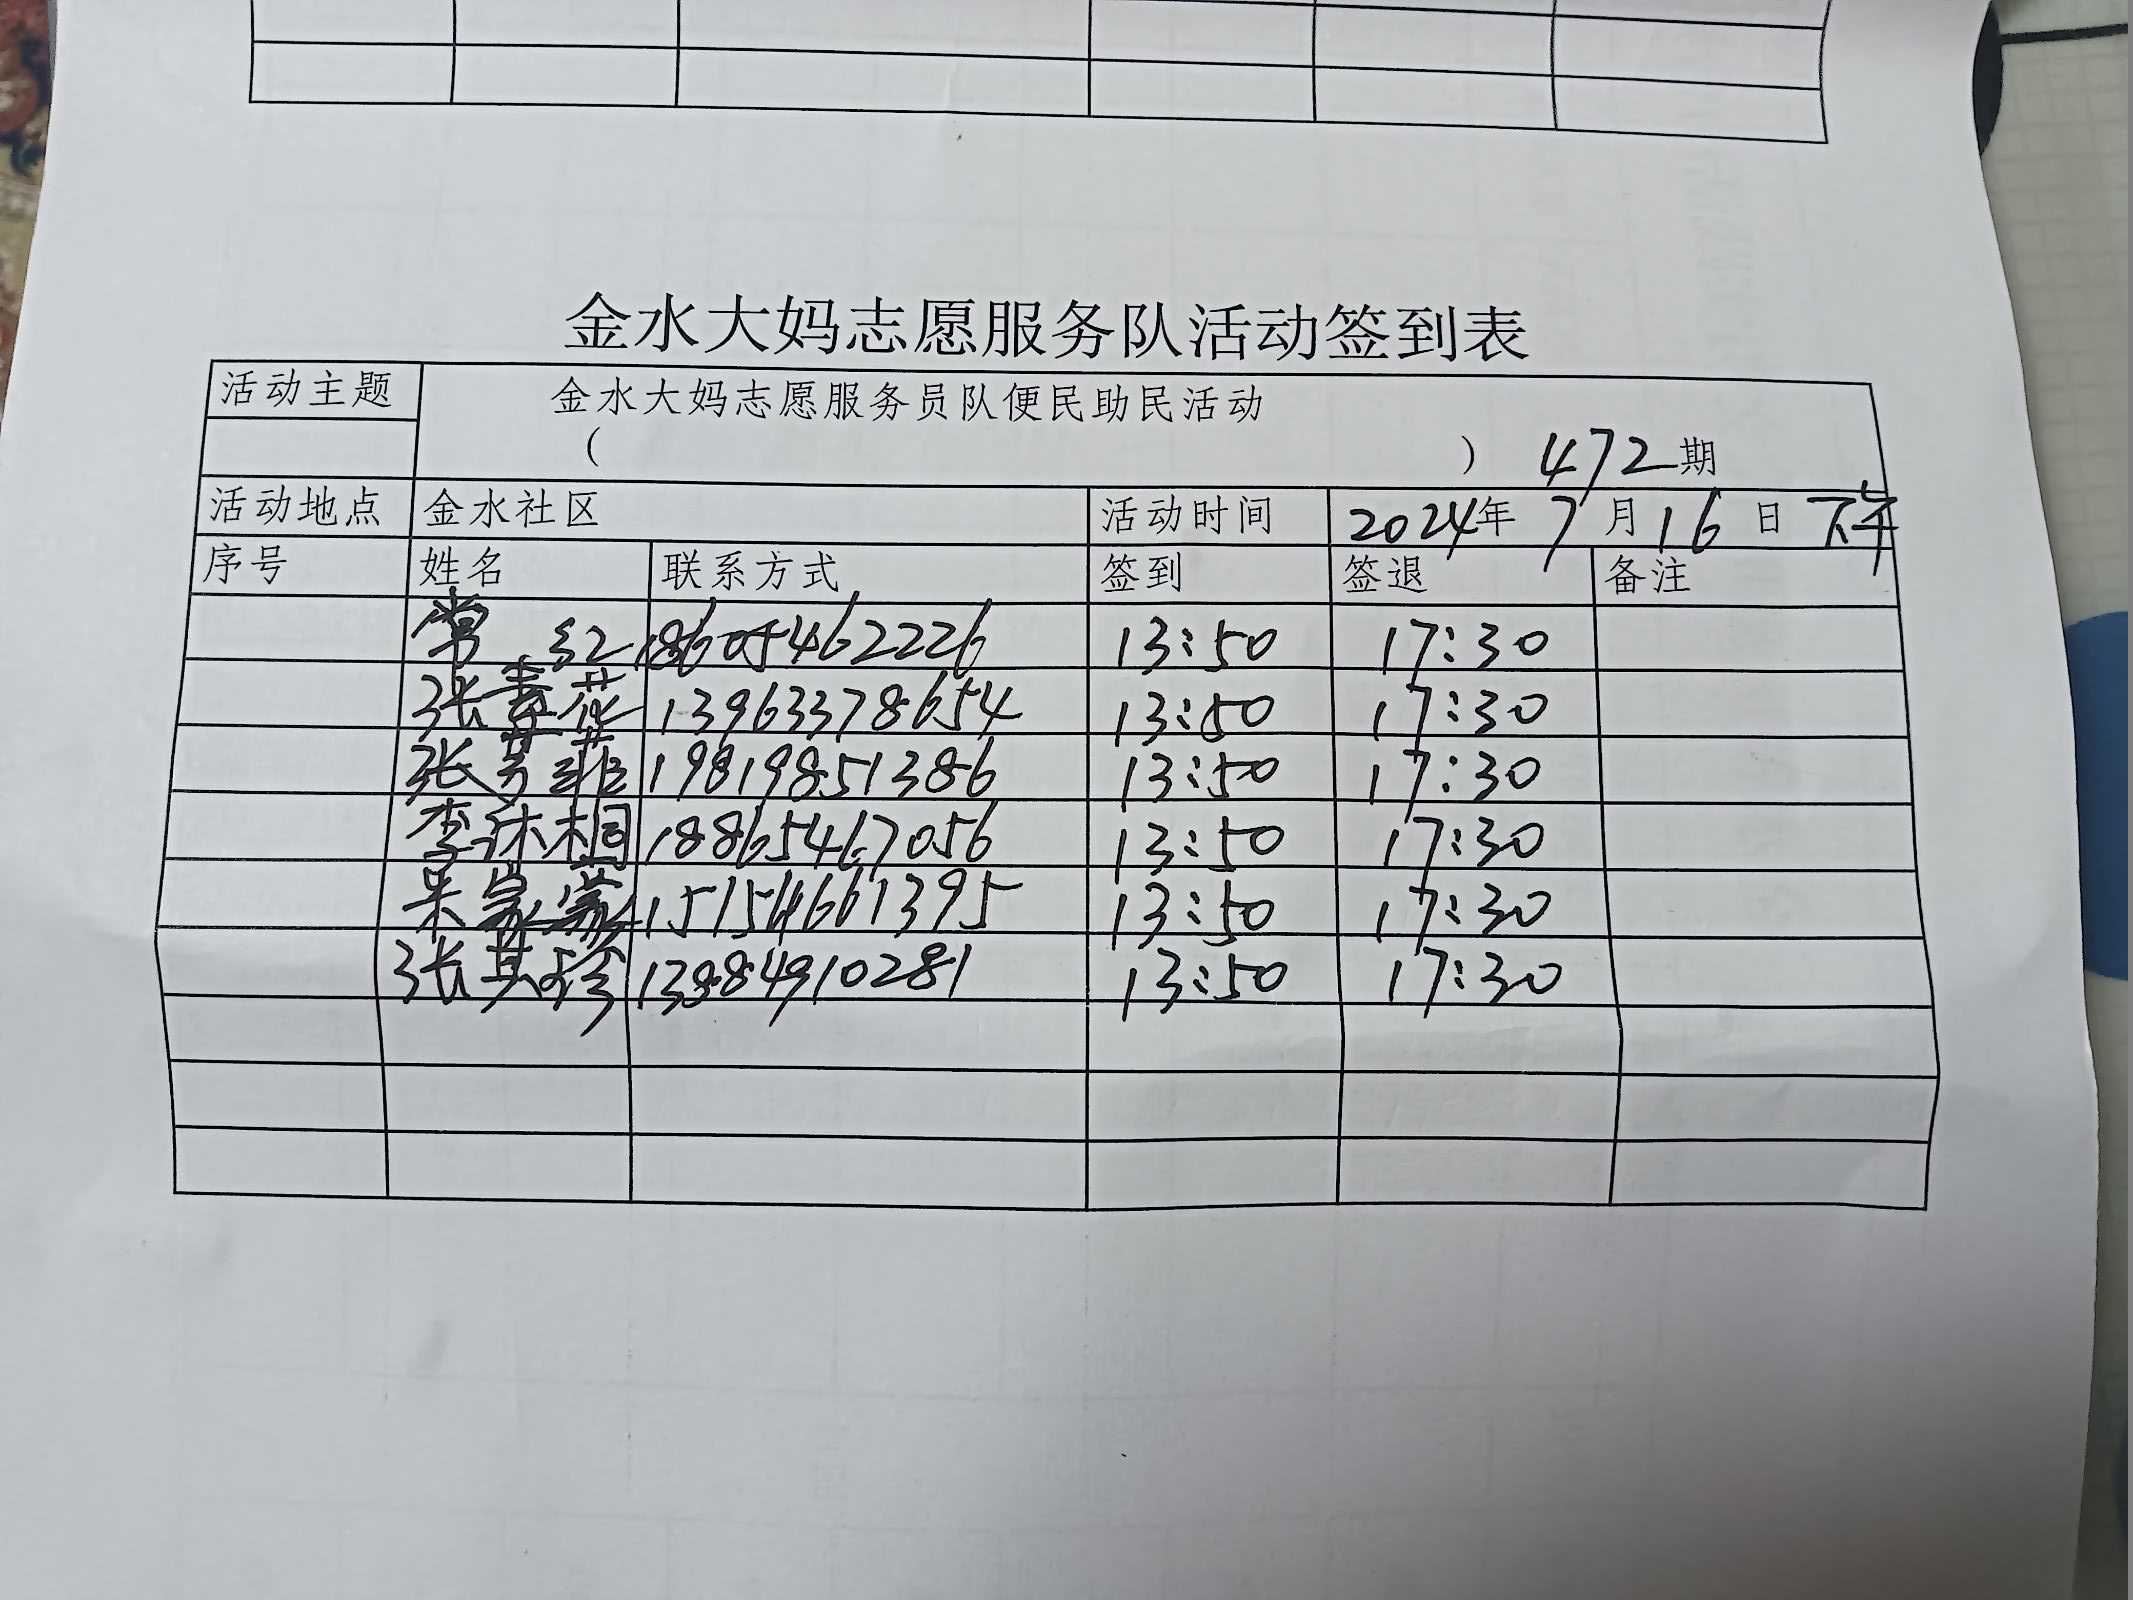 金水大妈志愿服务队活动签到表
活动主题 金水大妈志愿服务员队便民助民活动
( ) 472期
活动地点 金水社区 活动时间 2024年7月16日下午
序号 姓名 联系方式 签到 签退 备注
常红 18605462226 13:50 17:30
张青花 13963378654 13:50 17:30
张芳菲 19819851386 13:50 17:30
李沐桐 18865467056 13:50 17:30
吴家蒙 13:50 17:30
张其珍 13:50 17:30